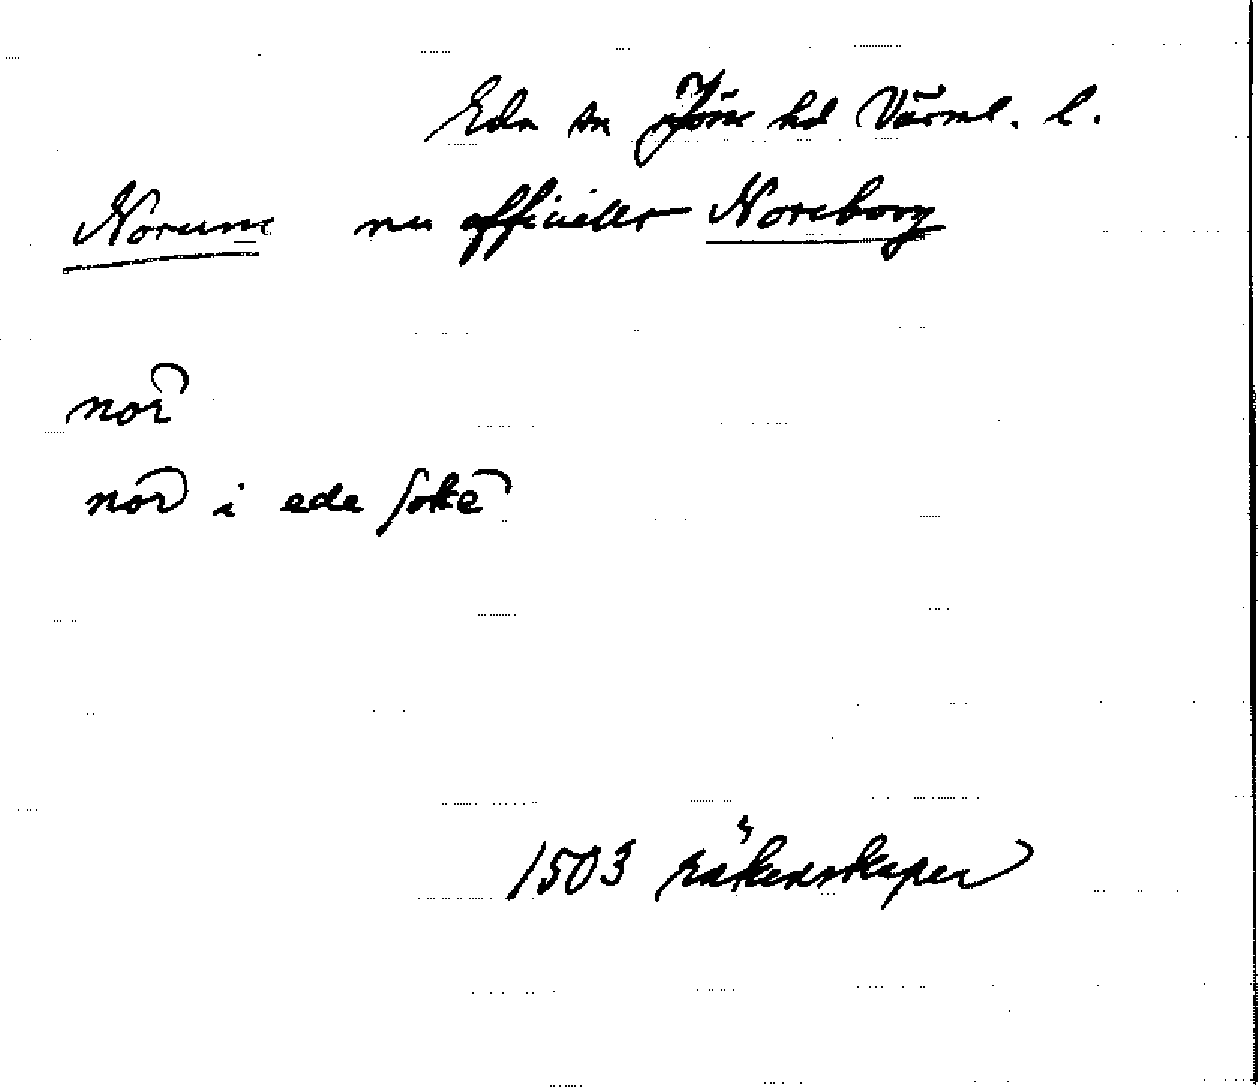 Eda sn Jösse hd Värml. l.
Norum nu officiellt Noreborg
nor
nor i ede soke
1503 räkenskaper